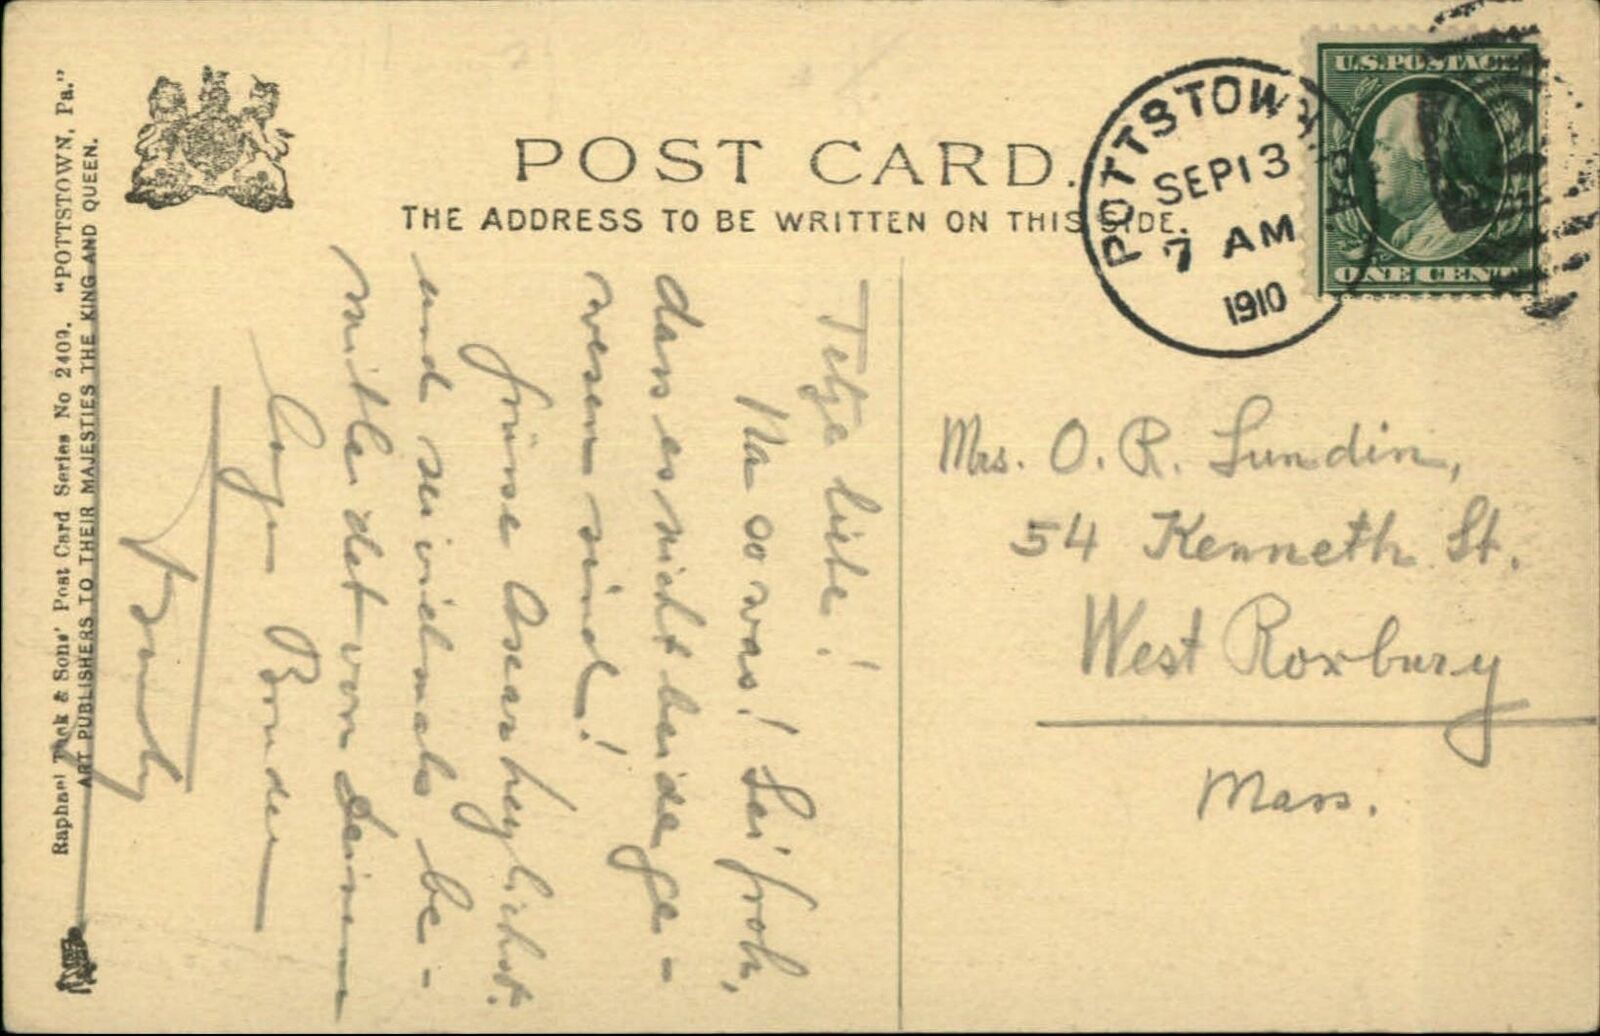 POST CARD.
THE ADDRESS TO BE WRITTEN ON THIS SIDE.
Raphael Tuck & Sons' Post Card Series No 2409. "POTTSTOWN, Pa."
ART PUBLISHERS TO THEIR MAJESTIES THE KING AND QUEEN.
POTTSTOWN, PA.
SEP 13
7 AM
1910
U.S. POSTAGE
ONE CENT
Tetje liebe!
Na so was! Sei froh,
dass es nicht beide ge-
wesen sind!
Grüsse Oscar herzlichst.
und sei vielmals be-
mitleidet von Deinem
Bruder
Mrs. O. R. Lundin,
54 Kenneth St.
West Roxbury
Mass.